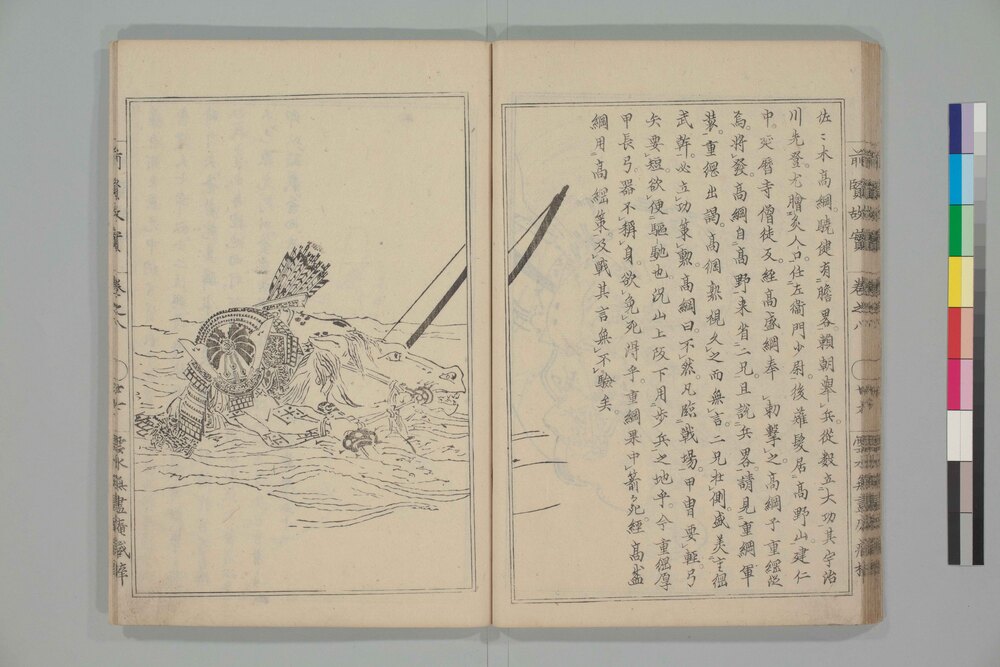 佐〻木高綱驍健有膽畧賴朝舉兵從數立大功其宇治
川先登尤膾炙人口仕左衞門少尉後薙髮居高野山建仁
中延曆寺僧徒反經高盛綱奉　勅擊之高綱子重綱從
為將發高綱自高野來省二兄且說兵畧請見重綱軍
裝重綱出謁高綱熟視久之而無言二兄在側盛美重綱
武幹必立功策勲高綱曰不然凡臨戰場甲冑要輕弓
矢要短欲便驅馳也況山上阪下用步兵之地乎今重綱厚
甲長弓器不稱身欲免死得乎重綱果中箭死經高盛
綱用高綱策及戰其言無不驗矣
前賢故實
卷之八
雲水無盡庵藏梓